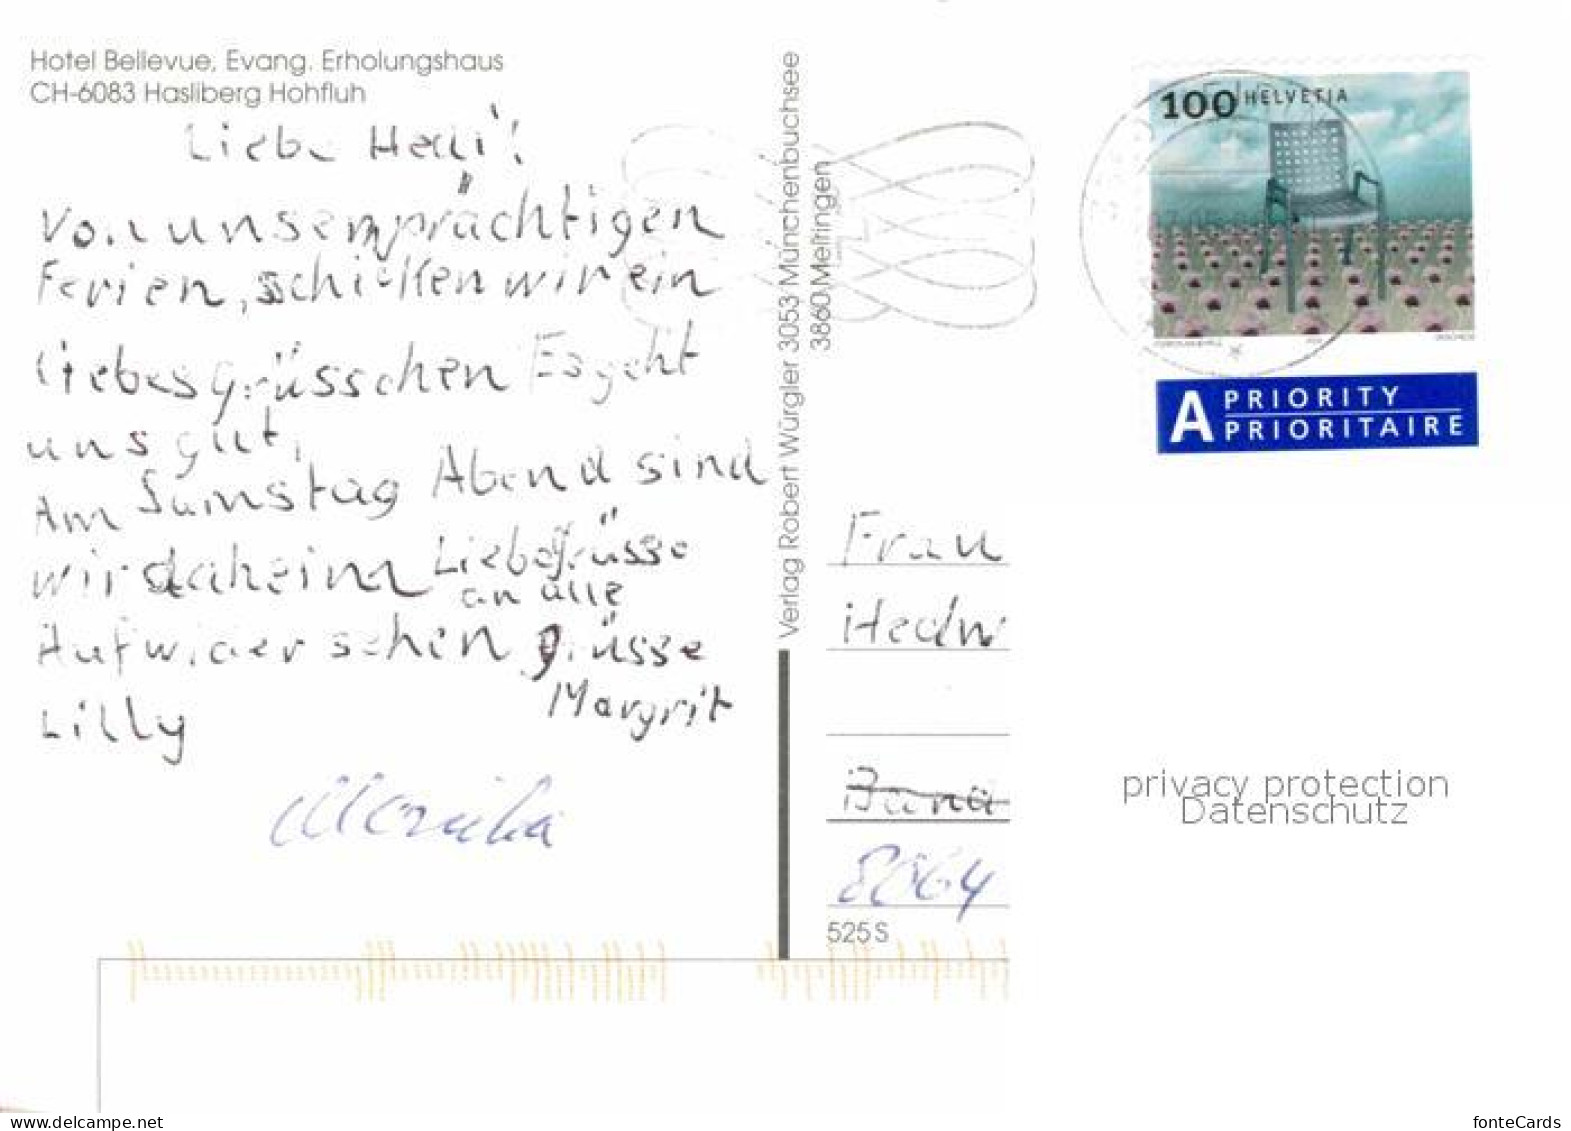 Hotel Bellevue, Evang. Erholungshaus
CH-6083 Hasliberg Hohfluh
Liebe Hedi!
Von unsem prächtigen
Ferien, schicken wir ein
Liebes Grüsschen Es geht
uns gut,
Am Samstag Abend sind
wir daheim Liebe Grüsse
an alle
Aufwidersehen grüsse
Lilly Margrit
Monika
Verlag Robert Würgler 3053 Münchenbuchsee
3860 Meiringen
100 HELVETIA
A PRIORITY
PRIORITAIRE
Frau
Hedw
8064
525 S
privacy protection
Datenschutz
www.delcampe.net
fonteCards